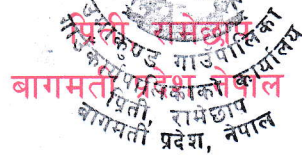 प्रिती रामेछाप
बागमती प्रदेश नेपाल
उमाकुण्ड गाउँपालिका
गाउँ कार्यपालिकाको कार्यालय
प्रिती, रामेछाप
बागमती प्रदेश, नेपाल